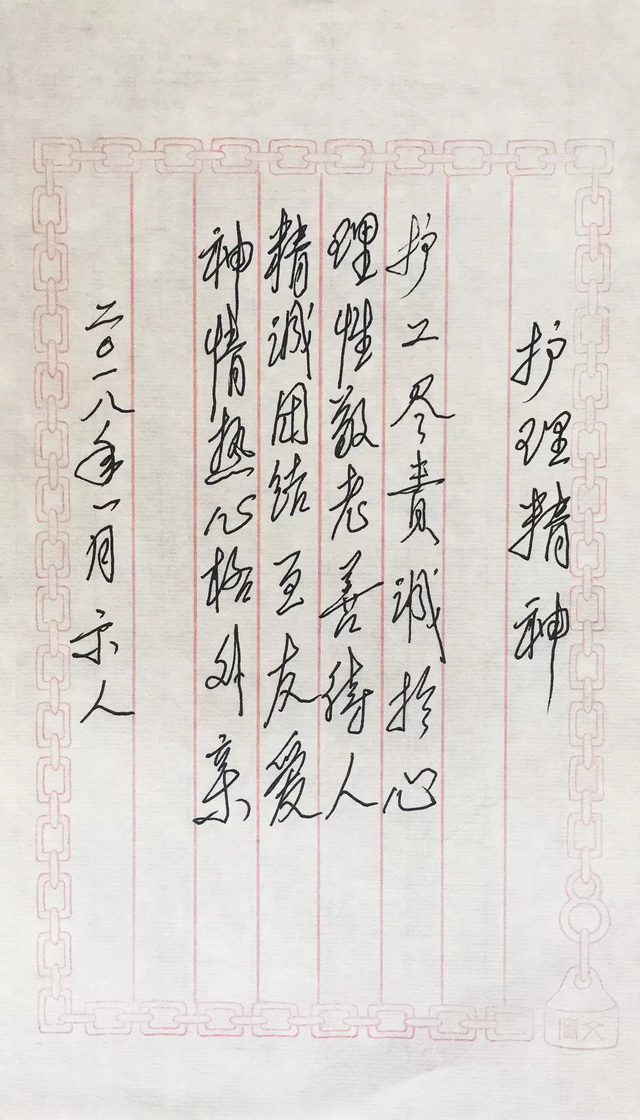 护理精神
护工尽责诚於心
理性敬老善待人
精诚团结互友爱
神情热心格外亲
二〇一八年一月示人